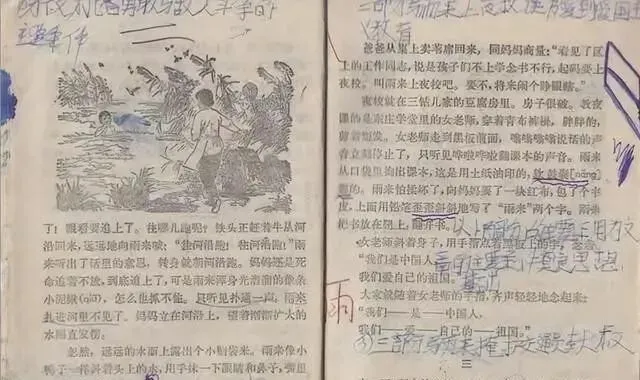 了！眼看要追上了。往哪儿跑呢？铁头正赶着牛从河
沿回来，远远地向雨来喊：“往河沿跑！往河沿跑！”雨
来听出了话里的意思，转身就朝河沿跑。妈妈还是死
命追着不放，到底追上了，可是雨来浑身光溜溜的像条
小泥鳅(qiū)，怎么也抓不住。只听见扑通一声，雨来
扎进河里不见了。妈妈立在河沿上，望着渐渐扩大的
水圈直发愣。
忽然，远远的水面上露出个小脑袋来。雨来像小
鸭子一样抖着头上的水，用手抹一下眼睛和鼻子，嘴里
爸爸从集上卖苇席回来，同妈妈商量：“看见了区
上的工作同志，说是孩子们不上学念书不行，起码要上
夜校。叫雨来上夜校吧。要不，将来闹个睁眼瞎。”
夜校就在三钻儿家的豆腐房里。房子很破。教夜
课的是东庄学堂里的女老师，穿着青布裤褂，胖胖的，
剪着短发。女老师走到黑板前面，嗡嗡嗡嗡说话的声
音立刻停止了，只听见哗啦哗啦翻课本的声音。雨来
从口袋里掏出课本，这是用土纸油印的，软鼓囊[nāng]
囊的。雨来怕揉坏了，向妈妈要了一块红布，包了个书
皮，上面用铅笔歪歪斜斜地写了“雨来”两个字。雨来
把书放在腿上，翻开书。
女老师斜着身子，用手指点着黑板上的字，念着：
“我们是中国人，
我们爱自己的祖国。”
大家就随着女老师的手指，齐声轻轻地念起来：
“我们——是——中国人，
我们——爱——自己的——祖国。”
三
雨